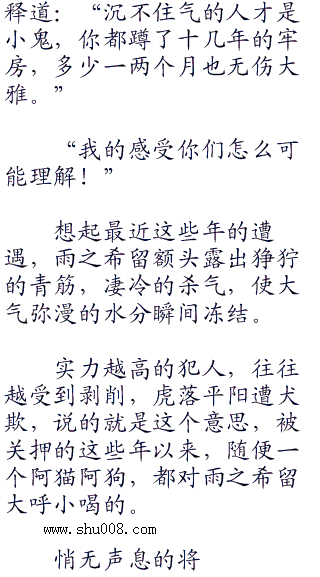 释道：“沉不住气的人才是
小鬼，你都蹲了十几年的牢
房，多少一两个月也无伤大
雅。”
“我的感受你们怎么可
能理解！”
想起最近这些年的遭
遇，雨之希留额头露出狰狞
的青筋，凄冷的杀气，使大
气弥漫的水分瞬间冻结。
实力越高的犯人，往往
越受到剥削，虎落平阳遭犬
欺，说的就是这个意思，被
关押的这些年以来，随便一
个阿猫阿狗，都对雨之希留
大呼小喝的。
www.shu008.com
悄无声息的将